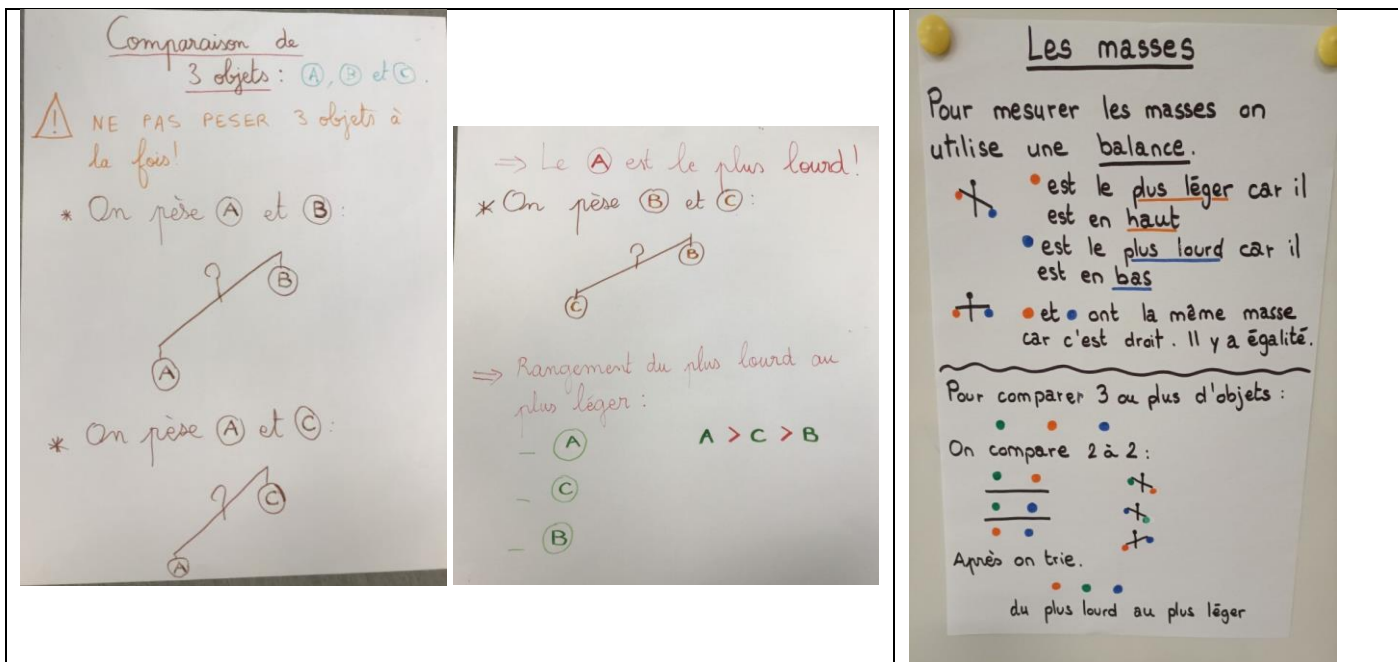 Comparaison de
3 objets : A, B et C.
! NE PAS PESER 3 objets à
la fois!
* On pèse A et B :
B
A
* On pèse A et C :
C
A
⇒ Le A est le plus lourd!
* On pèse B et C :
B
C
⇒ Rangement du plus lourd au
plus léger :
_ A A > C > B
_ C
_ B
Les masses
Pour mesurer les masses on
utilise une balance.
est le plus léger car il
est en haut
est le plus lourd car il
est en bas
et ont la même masse
car c'est droit. Il y a égalité.
Pour comparer 3 ou plus d'objets :
On compare 2 à 2 :
Après on trie.
du plus lourd au plus léger